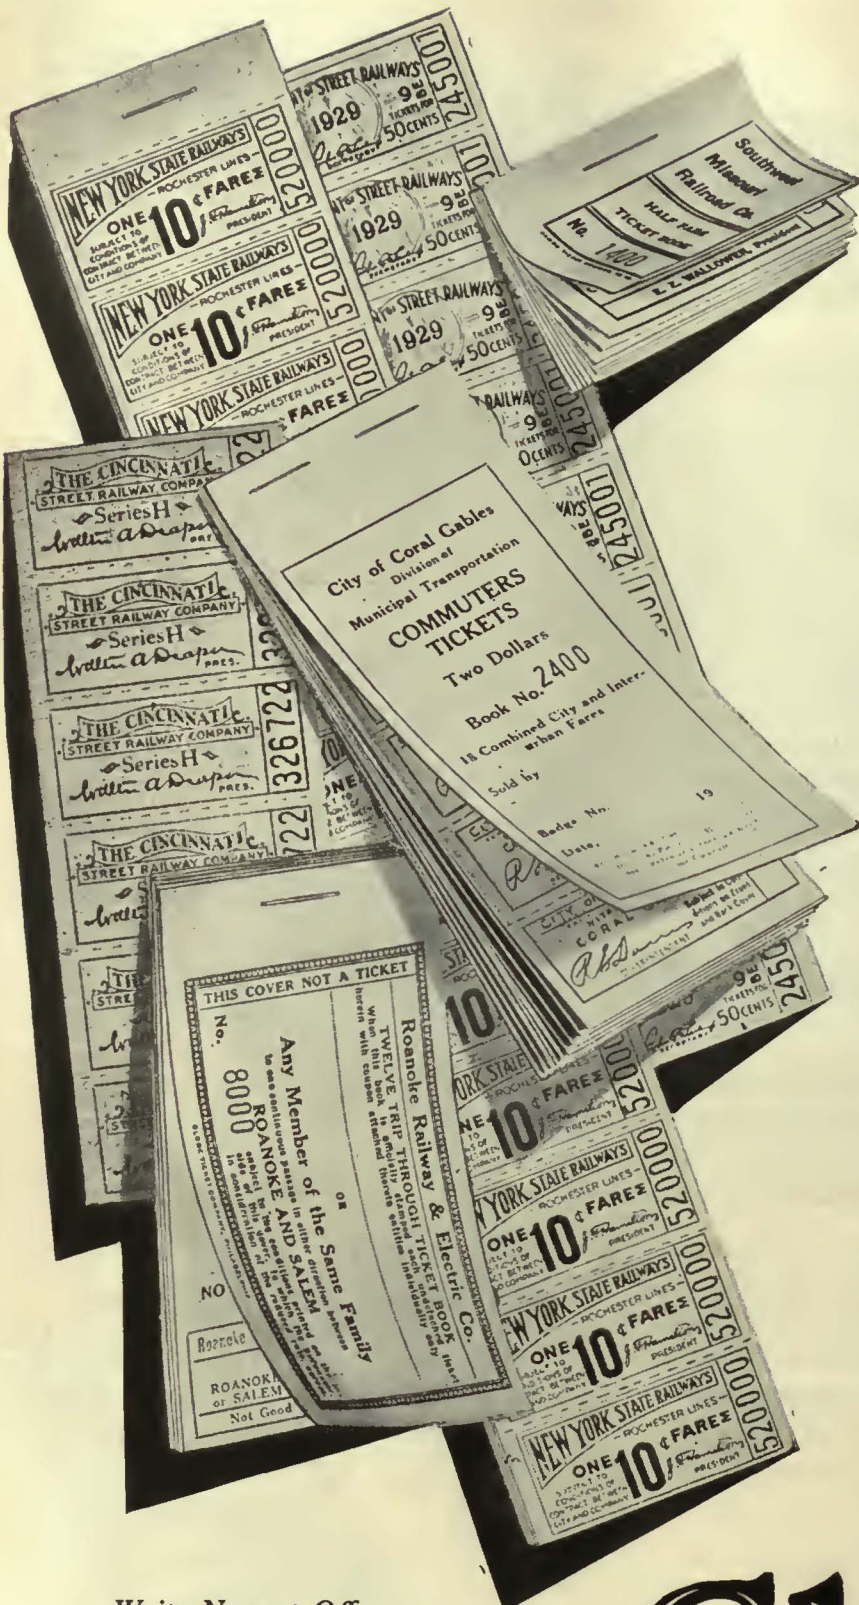 NEW YORK STATE RAILWAYS
- ROCHESTER LINES -
ONE 10¢ FARE
SUBJECT TO
CONDITIONS OF
CONTRACT BETWEEN
CITY AND COMPANY
PRESIDENT
520000
NEW YORK STATE RAILWAYS
- ROCHESTER LINES -
ONE 10¢ FARE
SUBJECT TO
CONDITIONS OF
CONTRACT BETWEEN
CITY AND COMPANY
PRESIDENT
520000
NEW YORK STATE RAILWAYS
- ROCHESTER LINES -
FARE
OF STREET RAILWAYS
1929
9
TICKETS FOR
50 CENTS
245001
OF STREET RAILWAYS
1929
9
50 CENTS
OF STREET RAILWAYS
1929
9
TICKETS FOR
50 CENTS
RAILWAYS
9
TICKETS FOR
245001
245001
Southwest
Missouri
Railroad Co.
HALF FARE
TICKET BOOK
No. 1400
E. Z. WALLOWER, President
THE CINCINNATI
STREET RAILWAY COMPANY
Series H
Walter A Draper
THE CINCINNATI
STREET RAILWAY COMPANY
Series H
Walter A Draper
PRES.
THE CINCINNATI
STREET RAILWAY COMPANY
Series H
Walter A Draper
PRES.
326722
THE CINCINNATI
STREET RAILWAY COMPANY
722
City of Coral Gables
Division of
Municipal Transportation
COMMUTERS
TICKETS
Two Dollars
Book No. 2400
18 Combined City and Inter-
urban Fares
Sold by
Badge No.
Date, 19
CORAL
9
TICKETS FOR
50 CENTS
THIS COVER NOT A TICKET
Roanoke Railway & Electric Co.
TWELVE TRIP THROUGH TICKET BOOK
When this book is officially stamped each undetached ticket
herein with coupon attached thereto entitles individually only
OR
Any Member of the Same Family
to one continuous passage in either direction between
ROANOKE AND SALEM
subject to the conditions printed on the
side of this cover, to which the
in consideration of the reduced rate
No. 8000
NO
Roanoke
ROANOKE
or SALEM
Not Good
10
ORK STATE
10¢ FARE
NEW YORK STATE RAILWAYS
- ROCHESTER LINES -
ONE 10¢ FARE
PRESIDENT
520000
NEW YORK STATE RAILWAYS
- ROCHESTER LINES -
ONE 10¢ FARE
PRESIDENT
520000
NEW YORK STATE RAILWAYS
- ROCHESTER LINES -
ONE 10¢ FARE
SUBJECT TO
CONDITIONS OF
CONTRACT BETWEEN
CITY AND COMPANY
PRESIDENT
520000